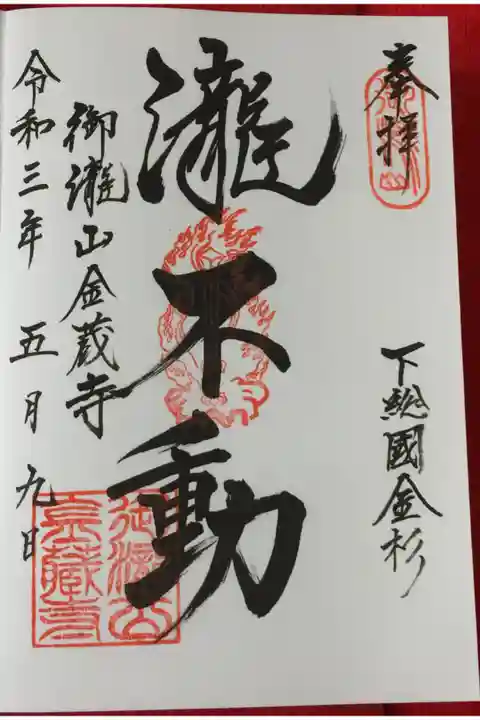 奉拝
下総國金杉
瀧不動
御瀧山金蔵寺
令和三年 五月 九日
御瀧山
金蔵寺